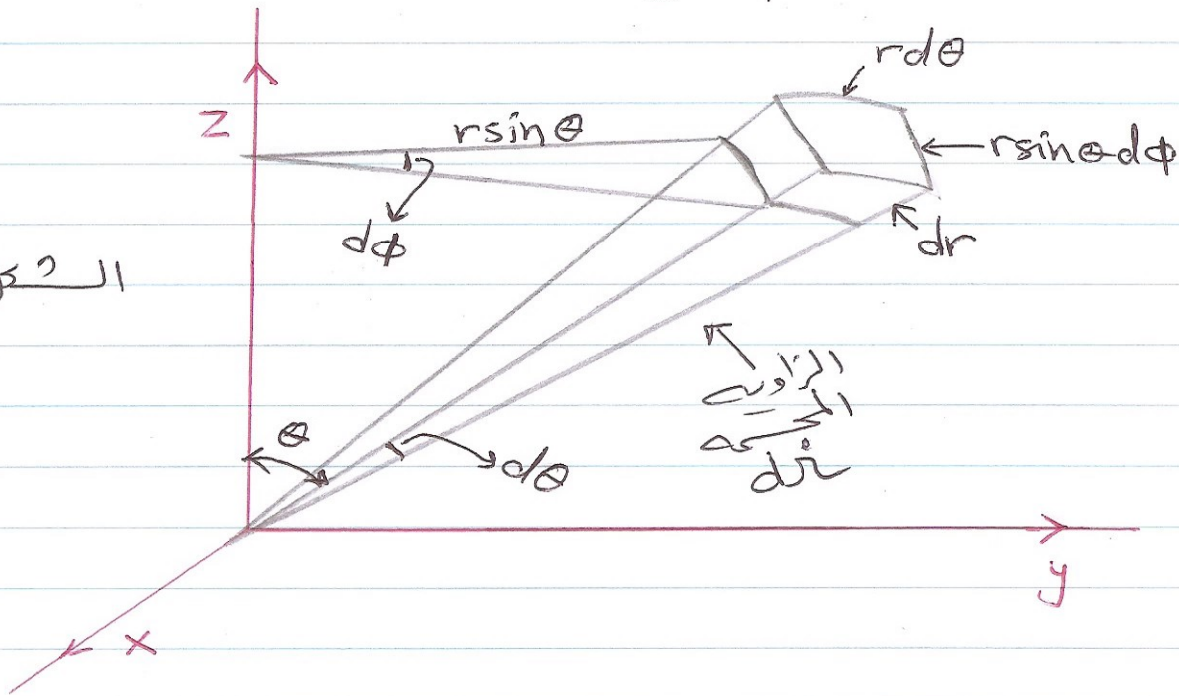 rdθ
z
rsinθ
rsinθdφ
dφ
dr
الزاويه
المجسمه
θ
dθ
y
x